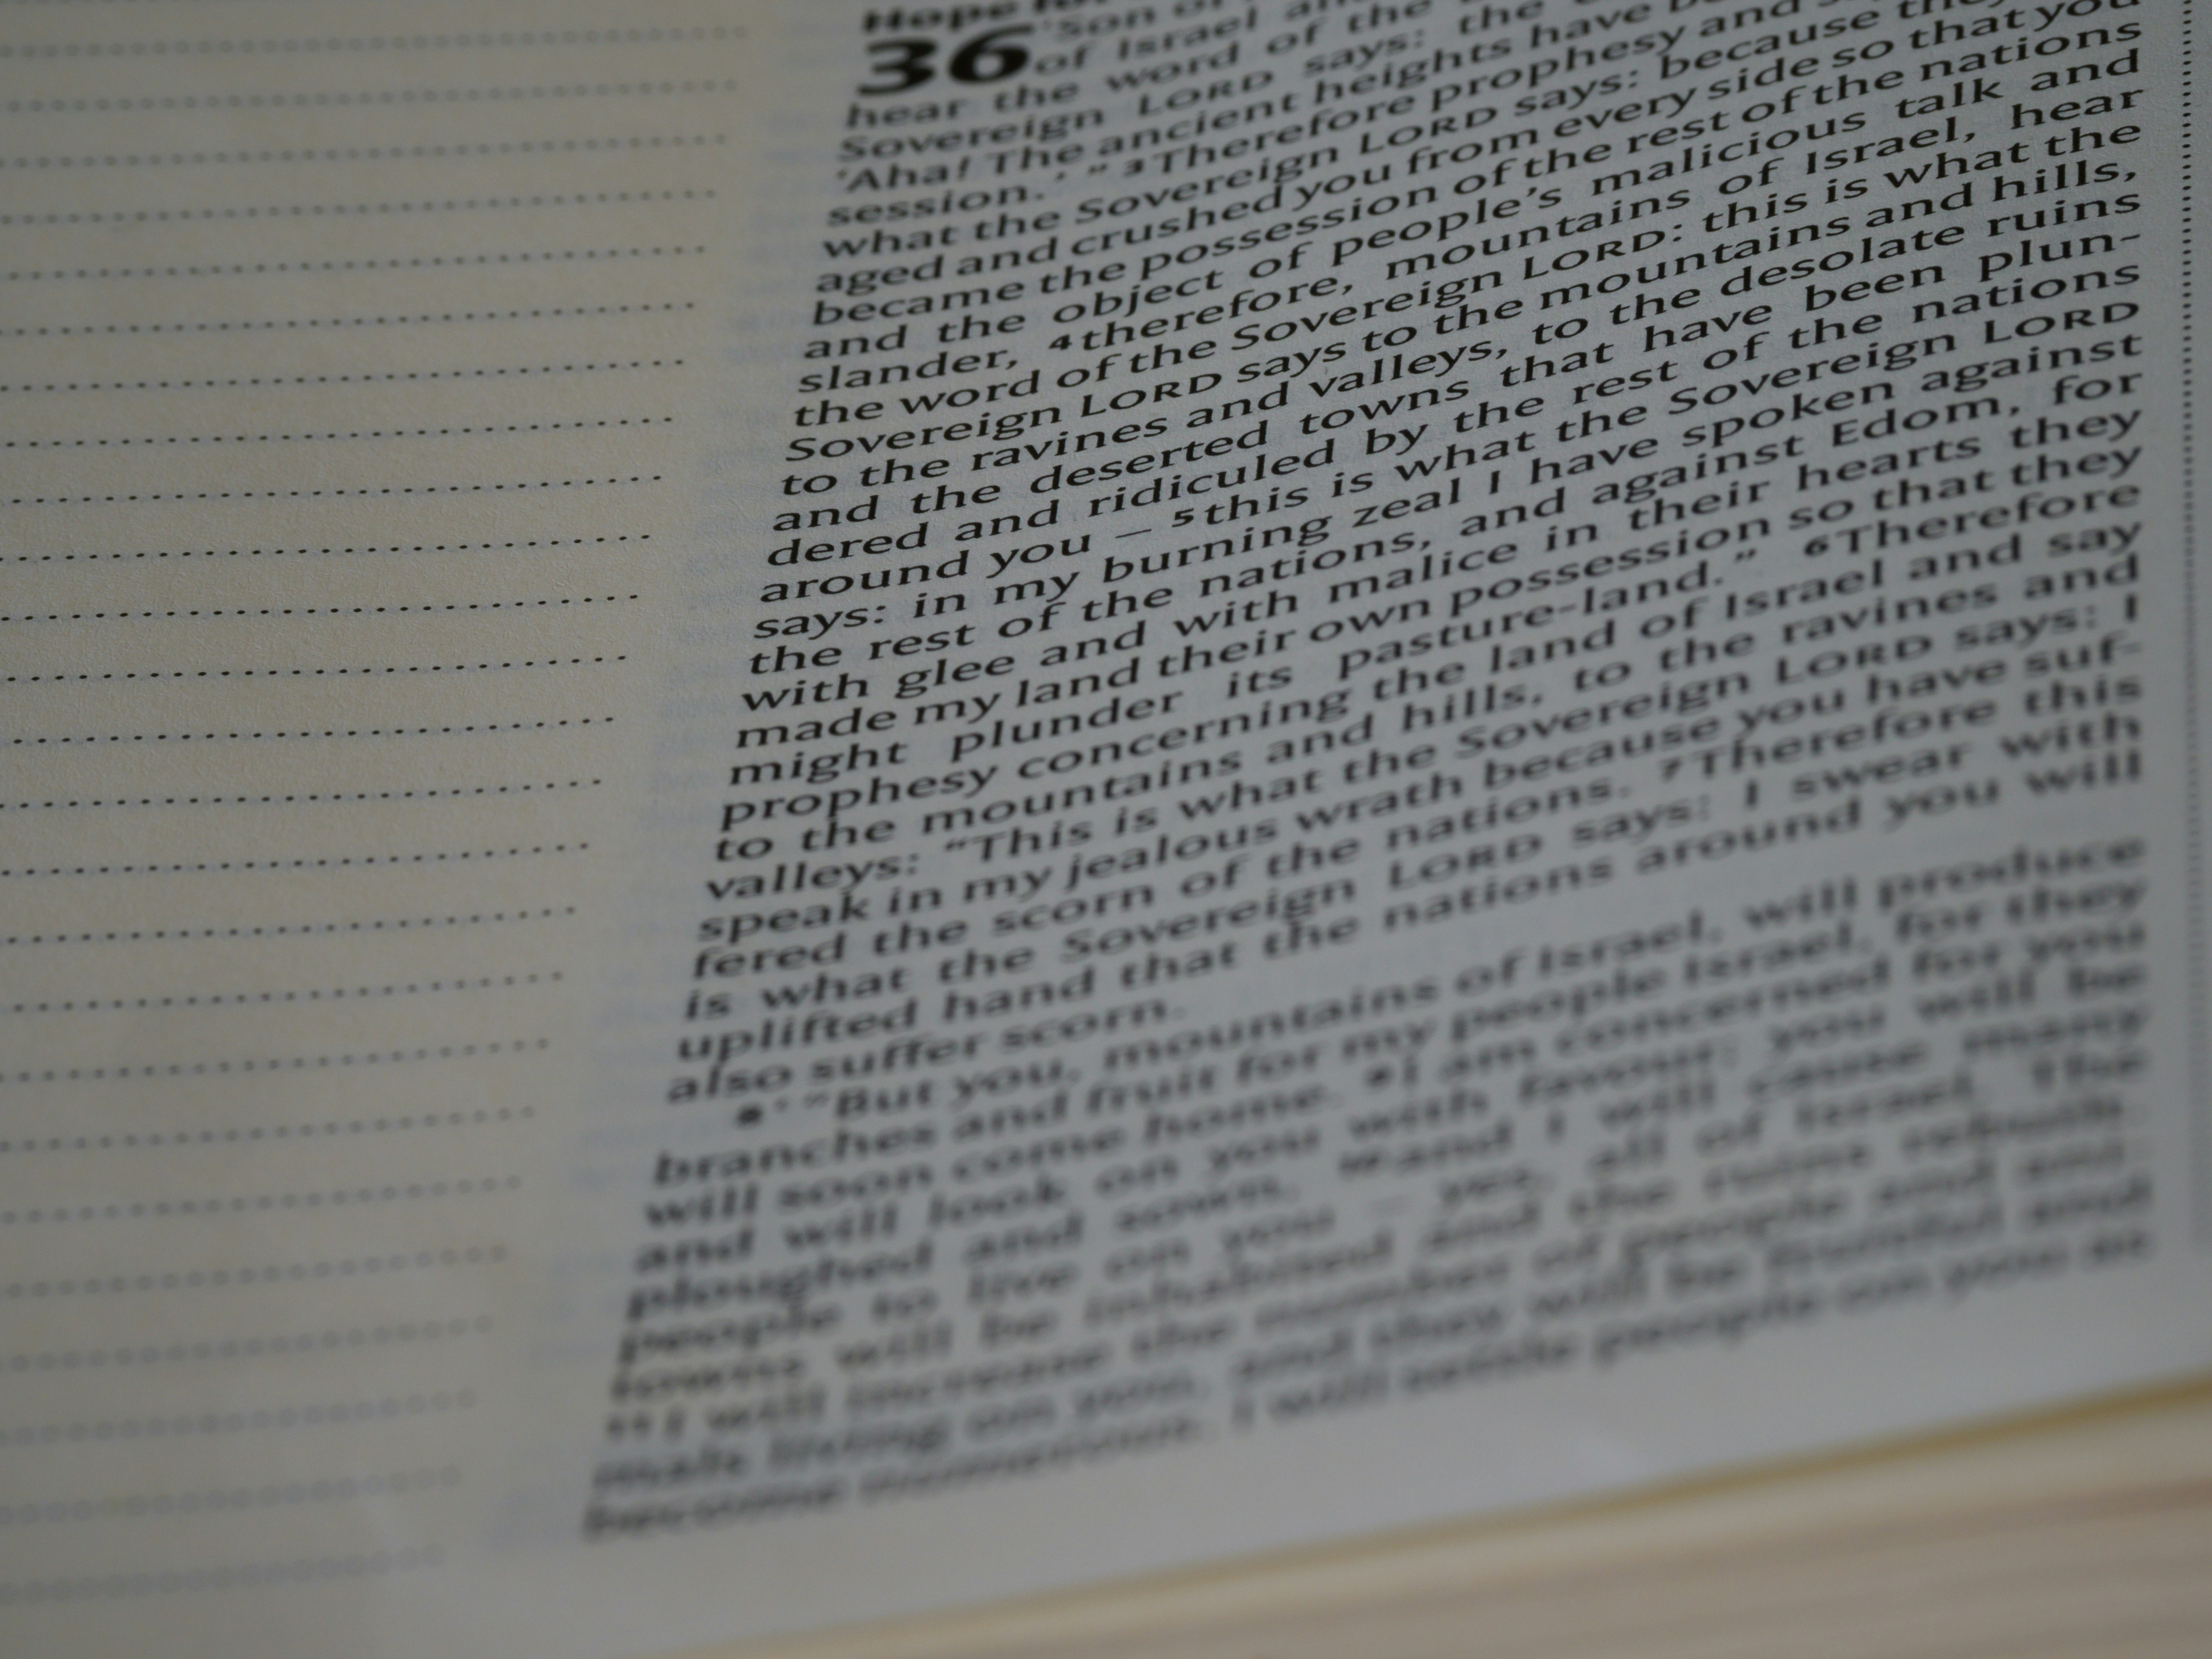 Hope for
36 'Son of
of Israel
hear the word of the
Sovereign LORD says: the
'Aha! The ancient heights have
session.' " ³Therefore prophesy and
what the Sovereign LORD says: because they
aged and crushed you from every side so that you
became the possession of the rest of the nations
and the object of people's malicious talk and
slander, ⁴therefore, mountains of Israel, hear
the word of the Sovereign LORD: this is what the
Sovereign LORD says to the mountains and hills,
to the ravines and valleys, to the desolate ruins
and the deserted towns that have been plun-
dered and ridiculed by the rest of the nations
around you – ⁵this is what the Sovereign LORD
says: in my burning zeal I have spoken against
the rest of the nations, and against Edom, for
with glee and with malice in their hearts they
made my land their own possession so that they
might plunder its pasture-land." ⁶Therefore
prophesy concerning the land of Israel and say
to the mountains and hills, to the ravines and
valleys: "This is what the Sovereign LORD says: I
speak in my jealous wrath because you have suf-
fered the scorn of the nations. ⁷Therefore this
is what the Sovereign LORD says: I swear with
uplifted hand that the nations around you will
also suffer scorn.
⁸' "But you, mountains of Israel, will produce
branches and fruit for my people Israel, for they
will soon come home. ⁹I am concerned for you
and will look on you with favour; you will be
ploughed and sown, ¹⁰and I will cause many
people to live on you – yes, all of Israel. The
towns will be inhabited and the ruins rebuilt.
¹¹I will increase the number of people and
living on you, and they will be fruitful and
become numerous. I will settle people on you as